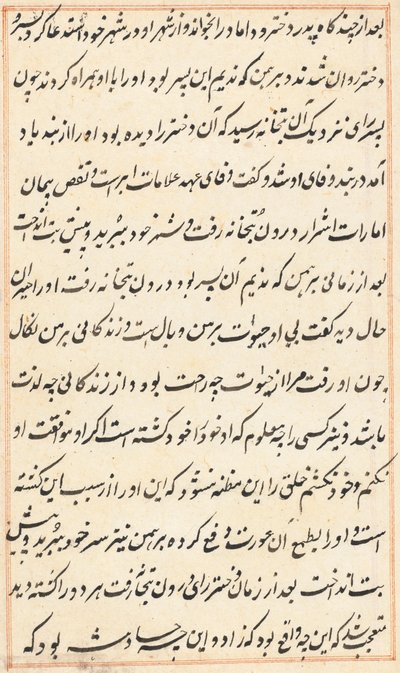 بعد از چند گاه پدر دختر و داماد را بخواند و از شهر او در شهر خود استدعا کرد پسر و
دختر روان شدند و برهمن که ندیم این پسر بود او را با او همراه کردند چون
پسر رای نزدیک آن بتخانه رسید که آن دختر را دیده بود او را از نذر یاد
آمد در بند وفای او شد و گفت وفای عهد علامات ابرار است و نقض پیمان
امارات اشرار درون بتخانه رفت و سر خود ببرید و پیش بت انداخت
بعد از زمانی برهمن که ندیم آن پسر بود درون بتخانه رفت او را بران
حال دید گفت بی او حیوات بر من وبال است و زندگانی بر من نکال
چون او رفت مرا از حیوات چه راحت بود و از زندگانی چه لذت
باشد و نیز کسی را چه معلوم که او خود را خود کشته است اگر او موافقت او
نکنم و خود نکشم خلق را این مظنه میشود که این او را از سبب این کشته
است و او را بطمع آن عورت دفع کرده برهمن نیز سر خود ببرید و پیش
بت انداخت بعد از زمان دختر رای درون بتخانه رفت هر دو را کشته دید
متعجب شد که این چه واقع بود که زاد و این چه حادثه بود که